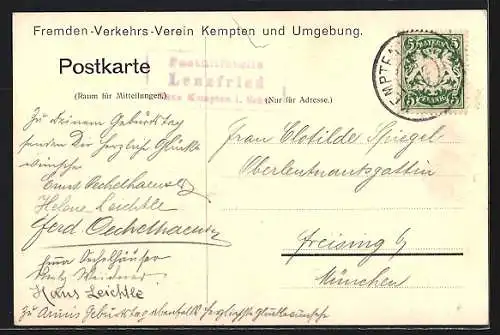 Fremden-Verkehrs-Verein Kempten und Umgebung.
Postkarte
(Raum für Mitteilungen.)
(Nur für Adresse.)
Posthilfstelle
Lenzfried
Kempten
BAYERN
5 5
PFENNIG
KEMPTEN
Zu Deinem Geburtstag
senden Dir herzlich Glück
wünsche
Ernst Oechelhaeuser
Helene Leichtle
Ferd Oechelhaeuser
Emma Oechelhäuser
Hans Leichtle
Zu Annis Geburtstag ebenfalls herzlichste Glückwünsche
Frau Clotilde Spiegel
Oberleutnantsgattin
Freising b/
München